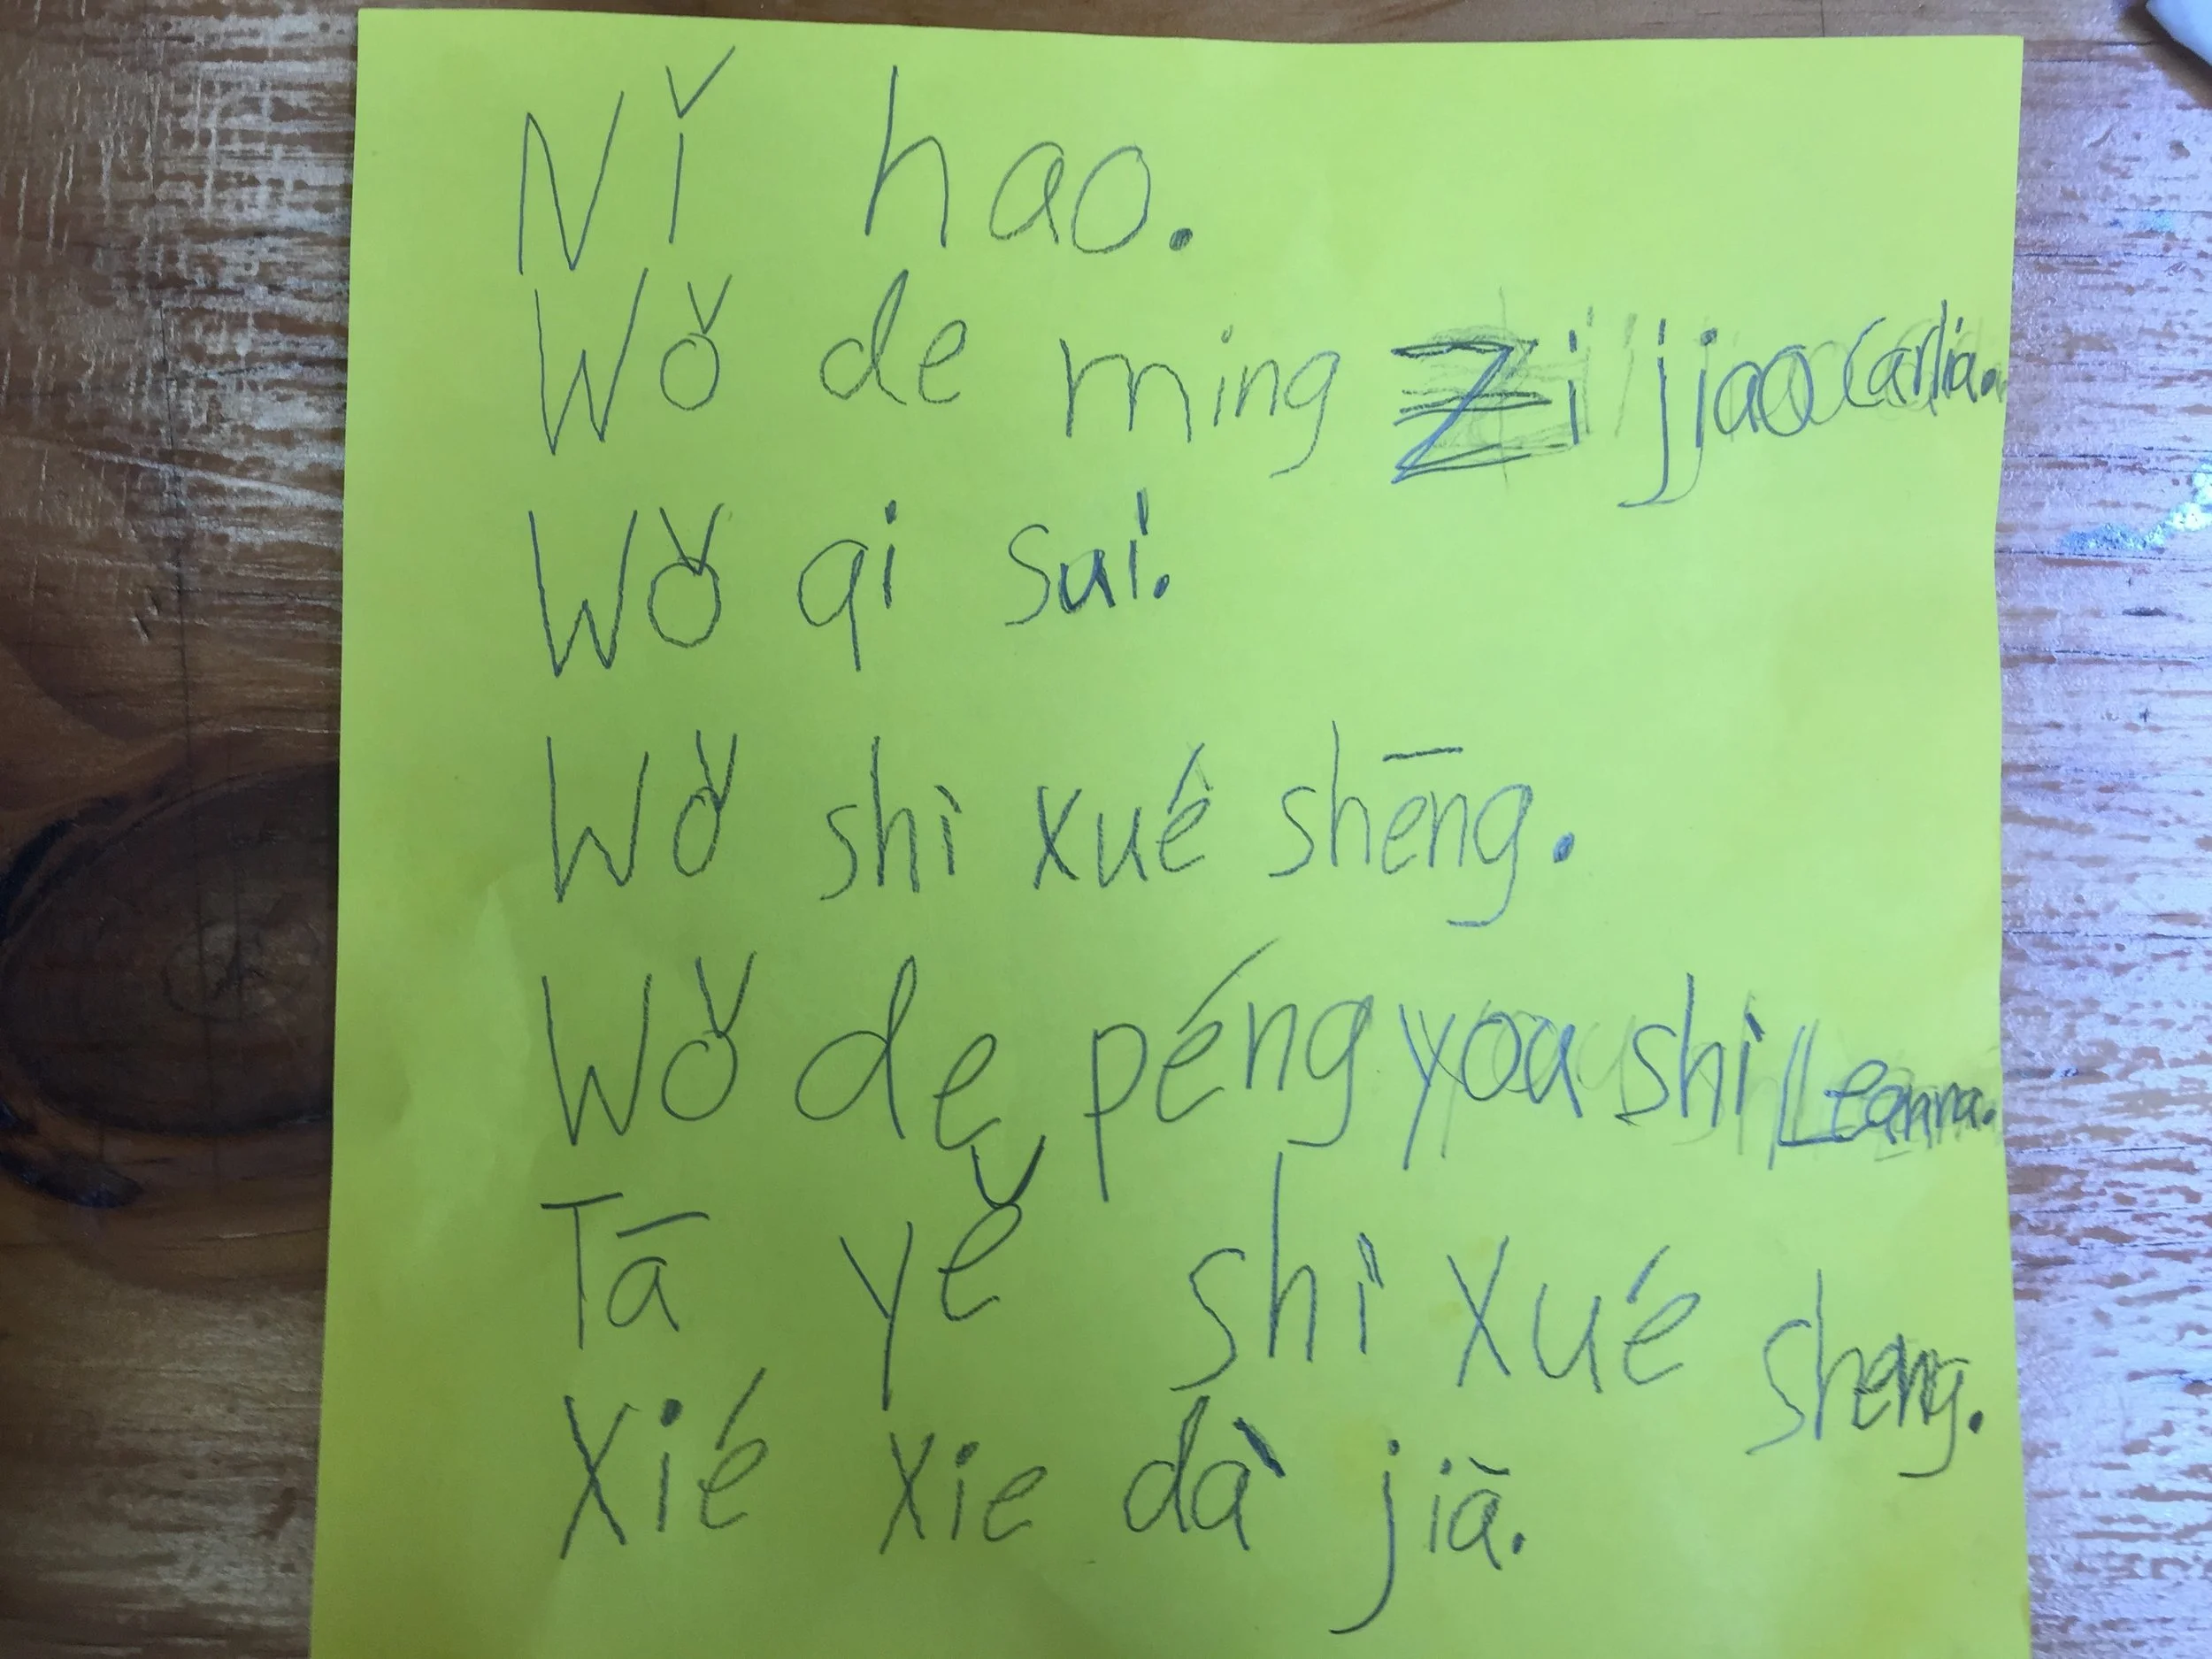 Nǐ hao.
Wǒ de ming zi jiao Carlia.
Wǒ qi sui.
Wǒ shì xué shēng.
Wǒ de péng you shì Leanna.
Tā yě shì xué sheng.
Xié xie dà jiā.